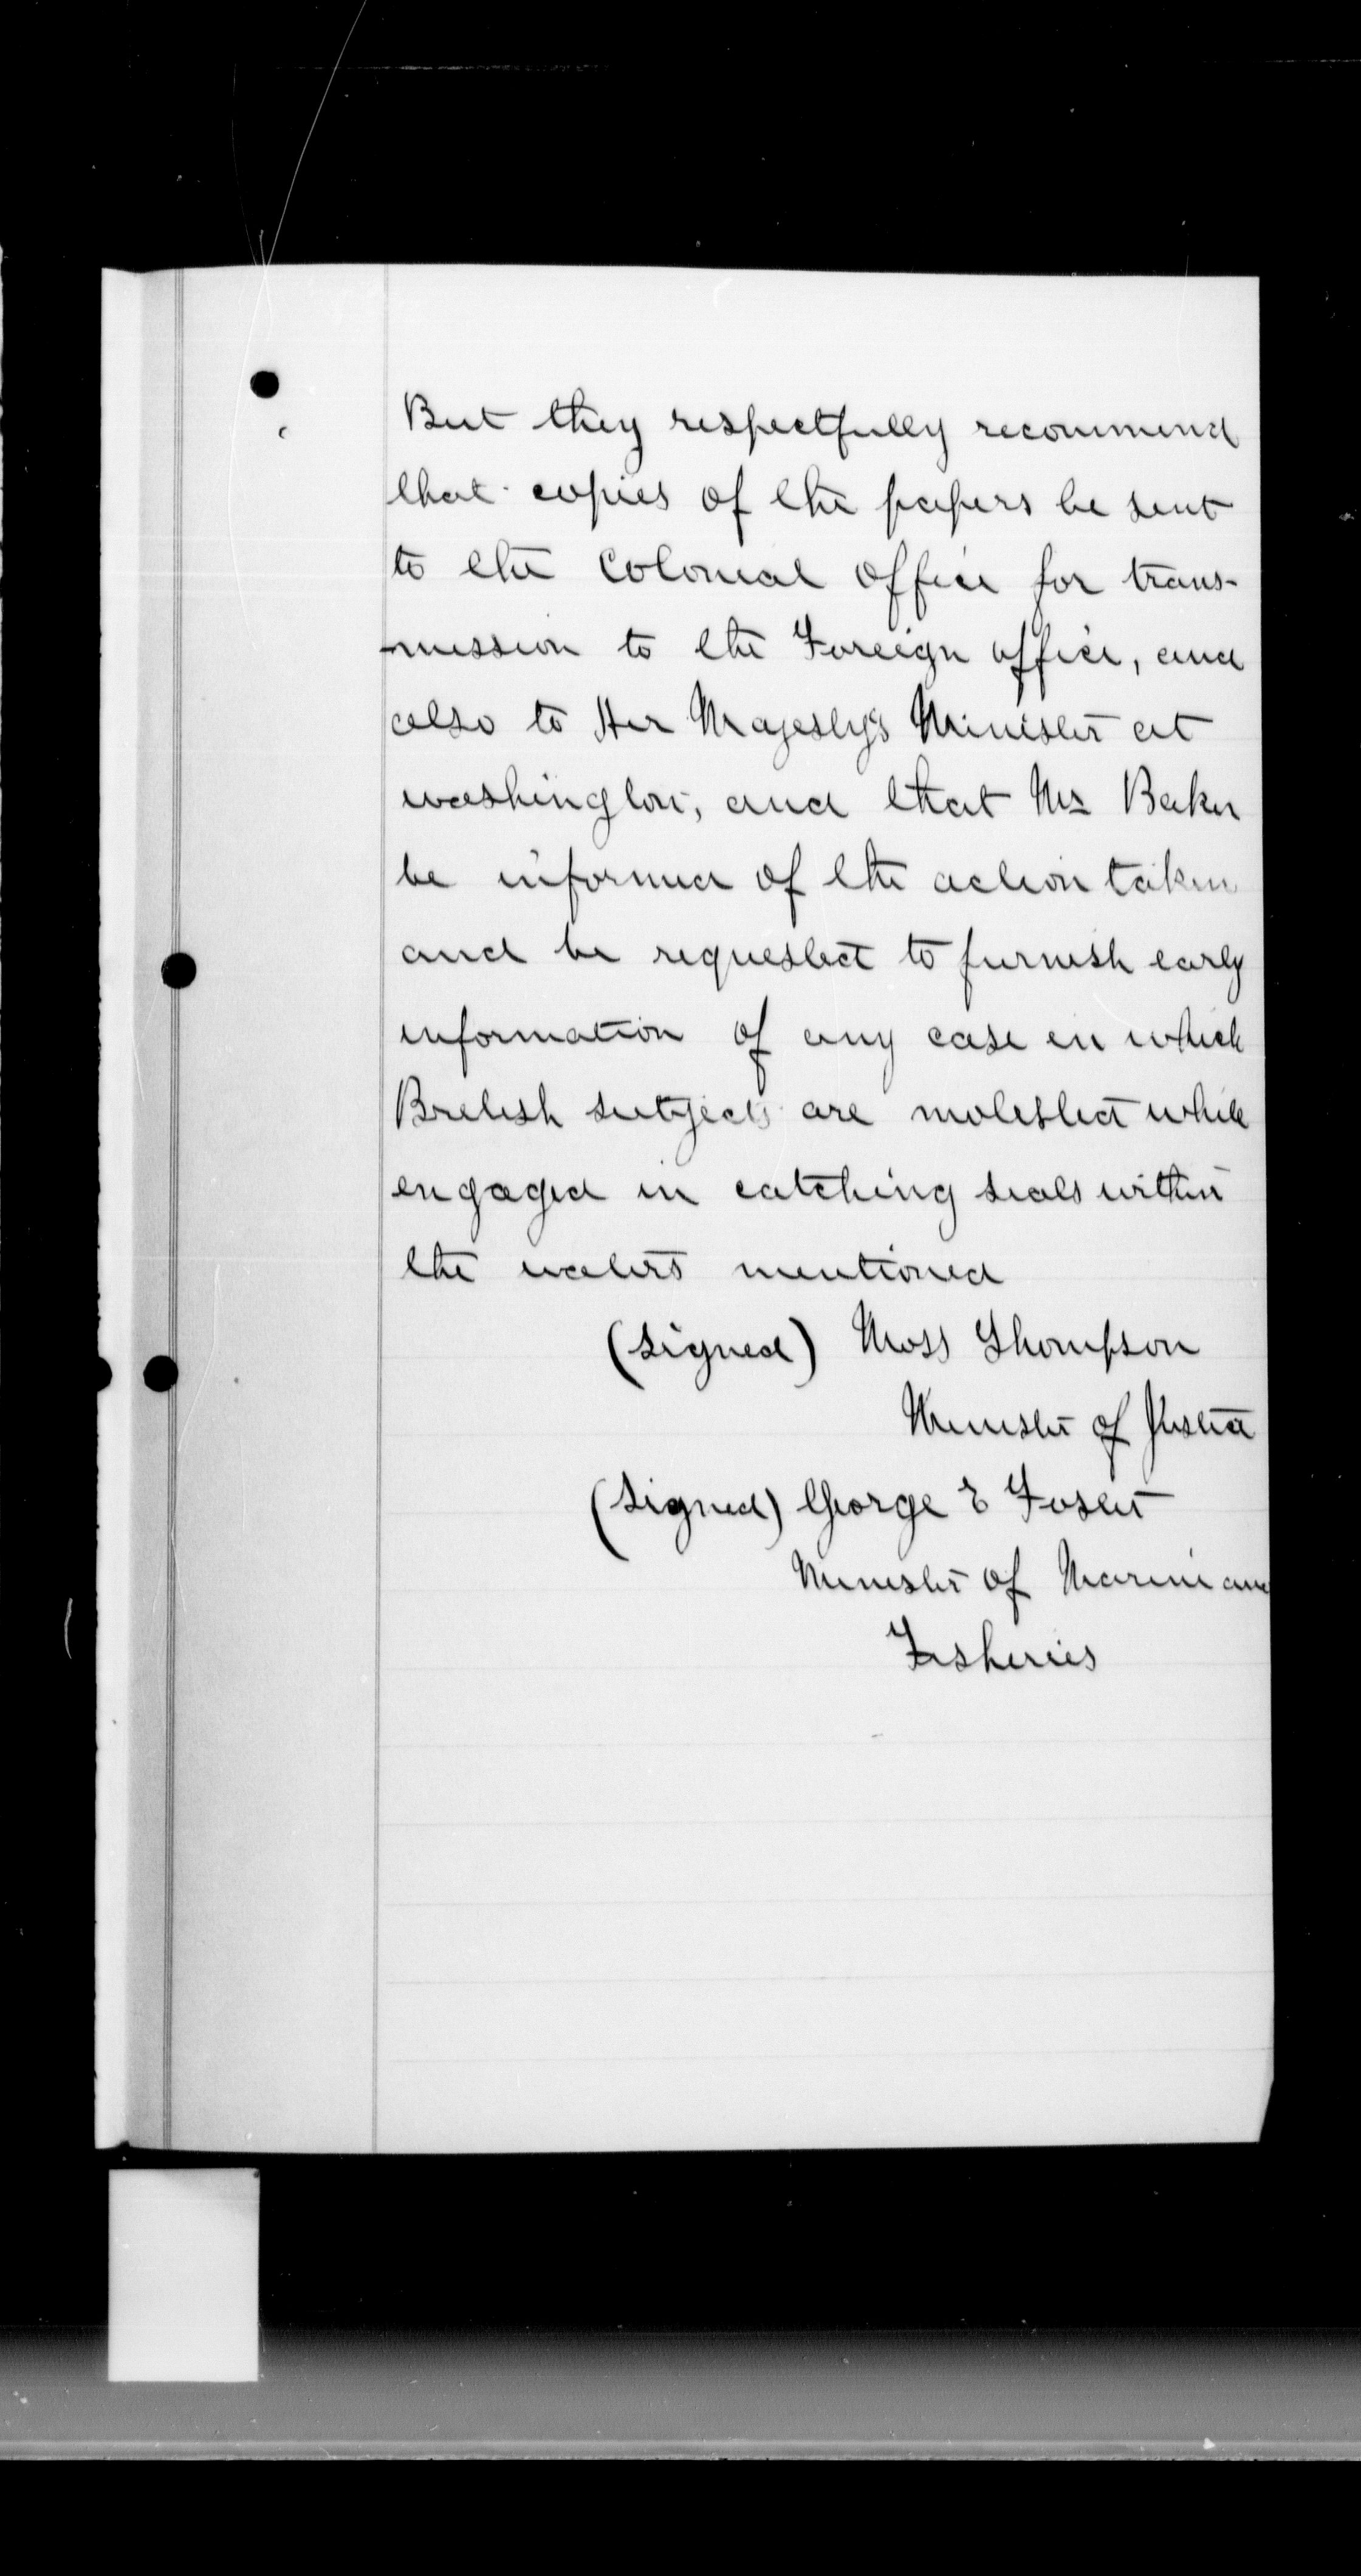 But they respectfully recommend
that copies of the papers be sent
to the Colonial Office for trans-
-mission to the Foreign office, and
also to Her Majesty's Minister at
washington, and that Mr Baker
be informed of the action taken
and be requested to furnish early
information of any case in which
British subjects are molested while
engaged in catching seals within
the waters mentioned
(signed) Moss Thompson
Minister of Justice
(signed) George E Foster
Minister of Marine and
Fisheries